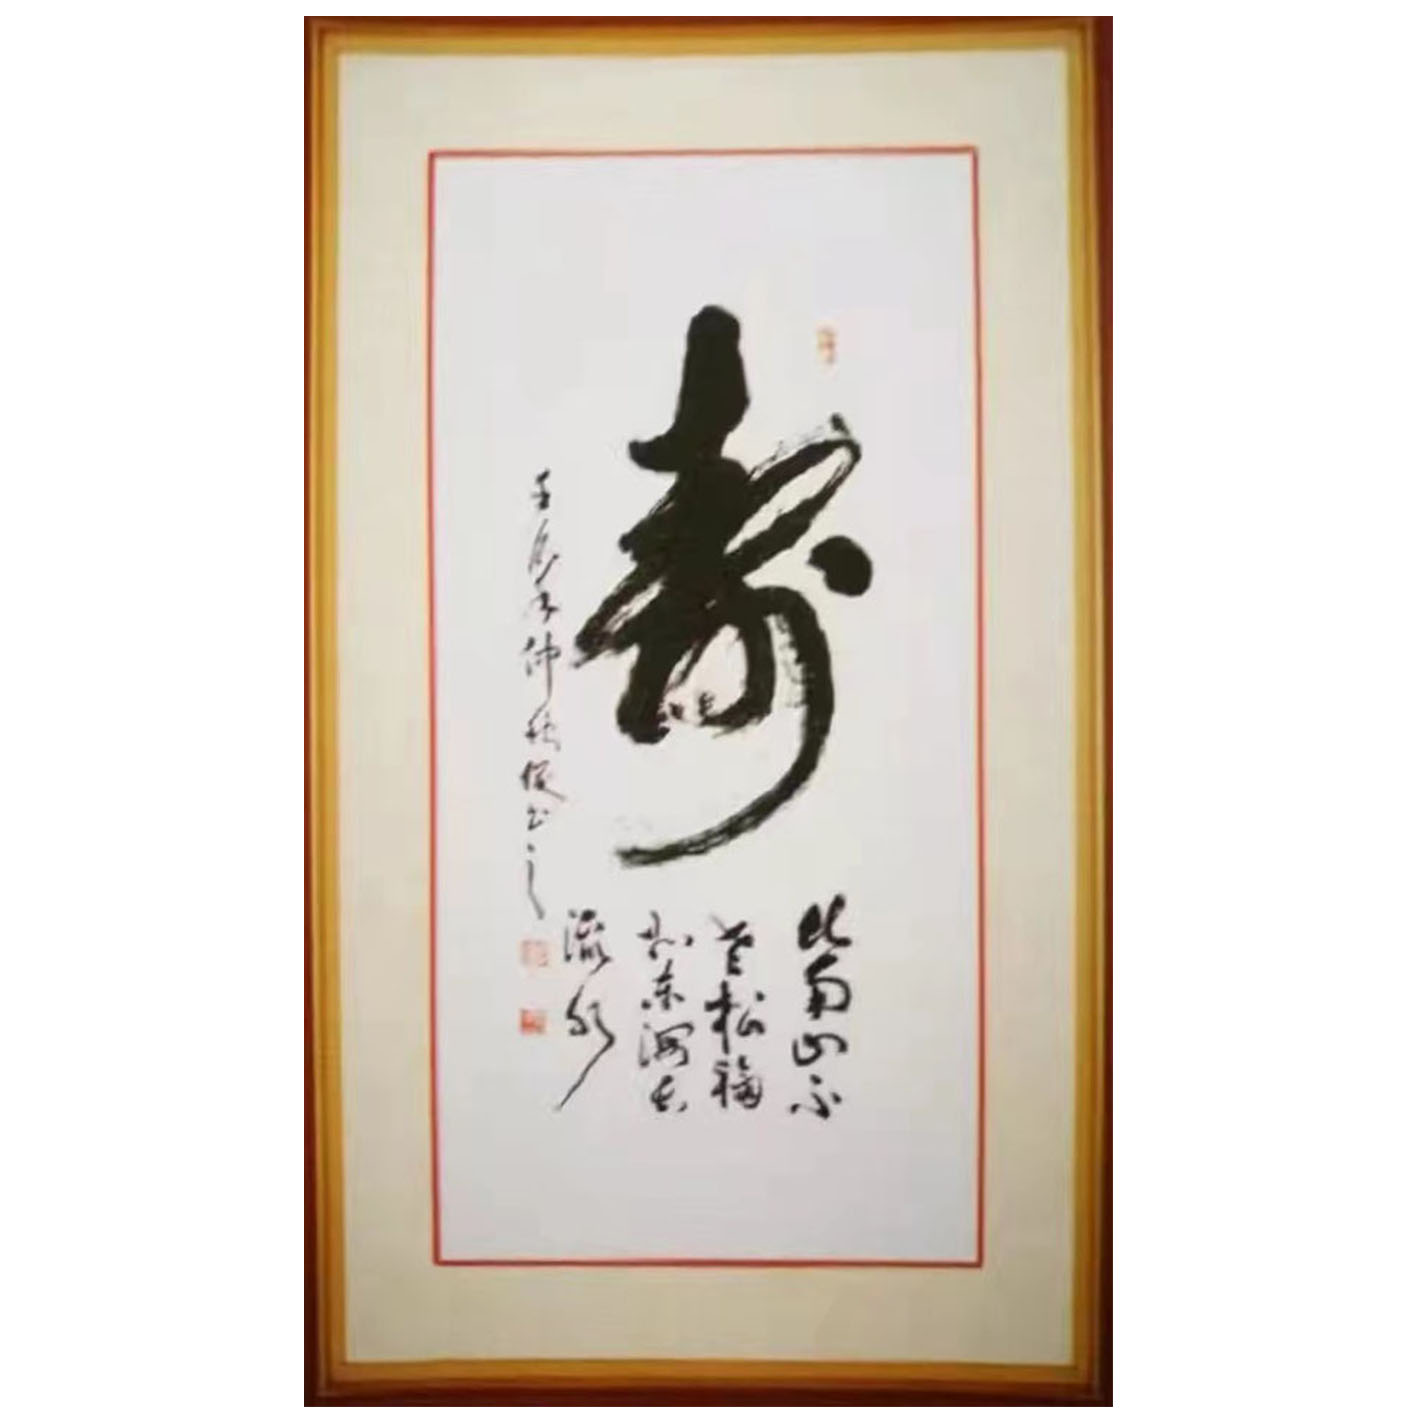 寿
比南山不
老松福
如东海长
流水
壬辰年仲秋俊书之